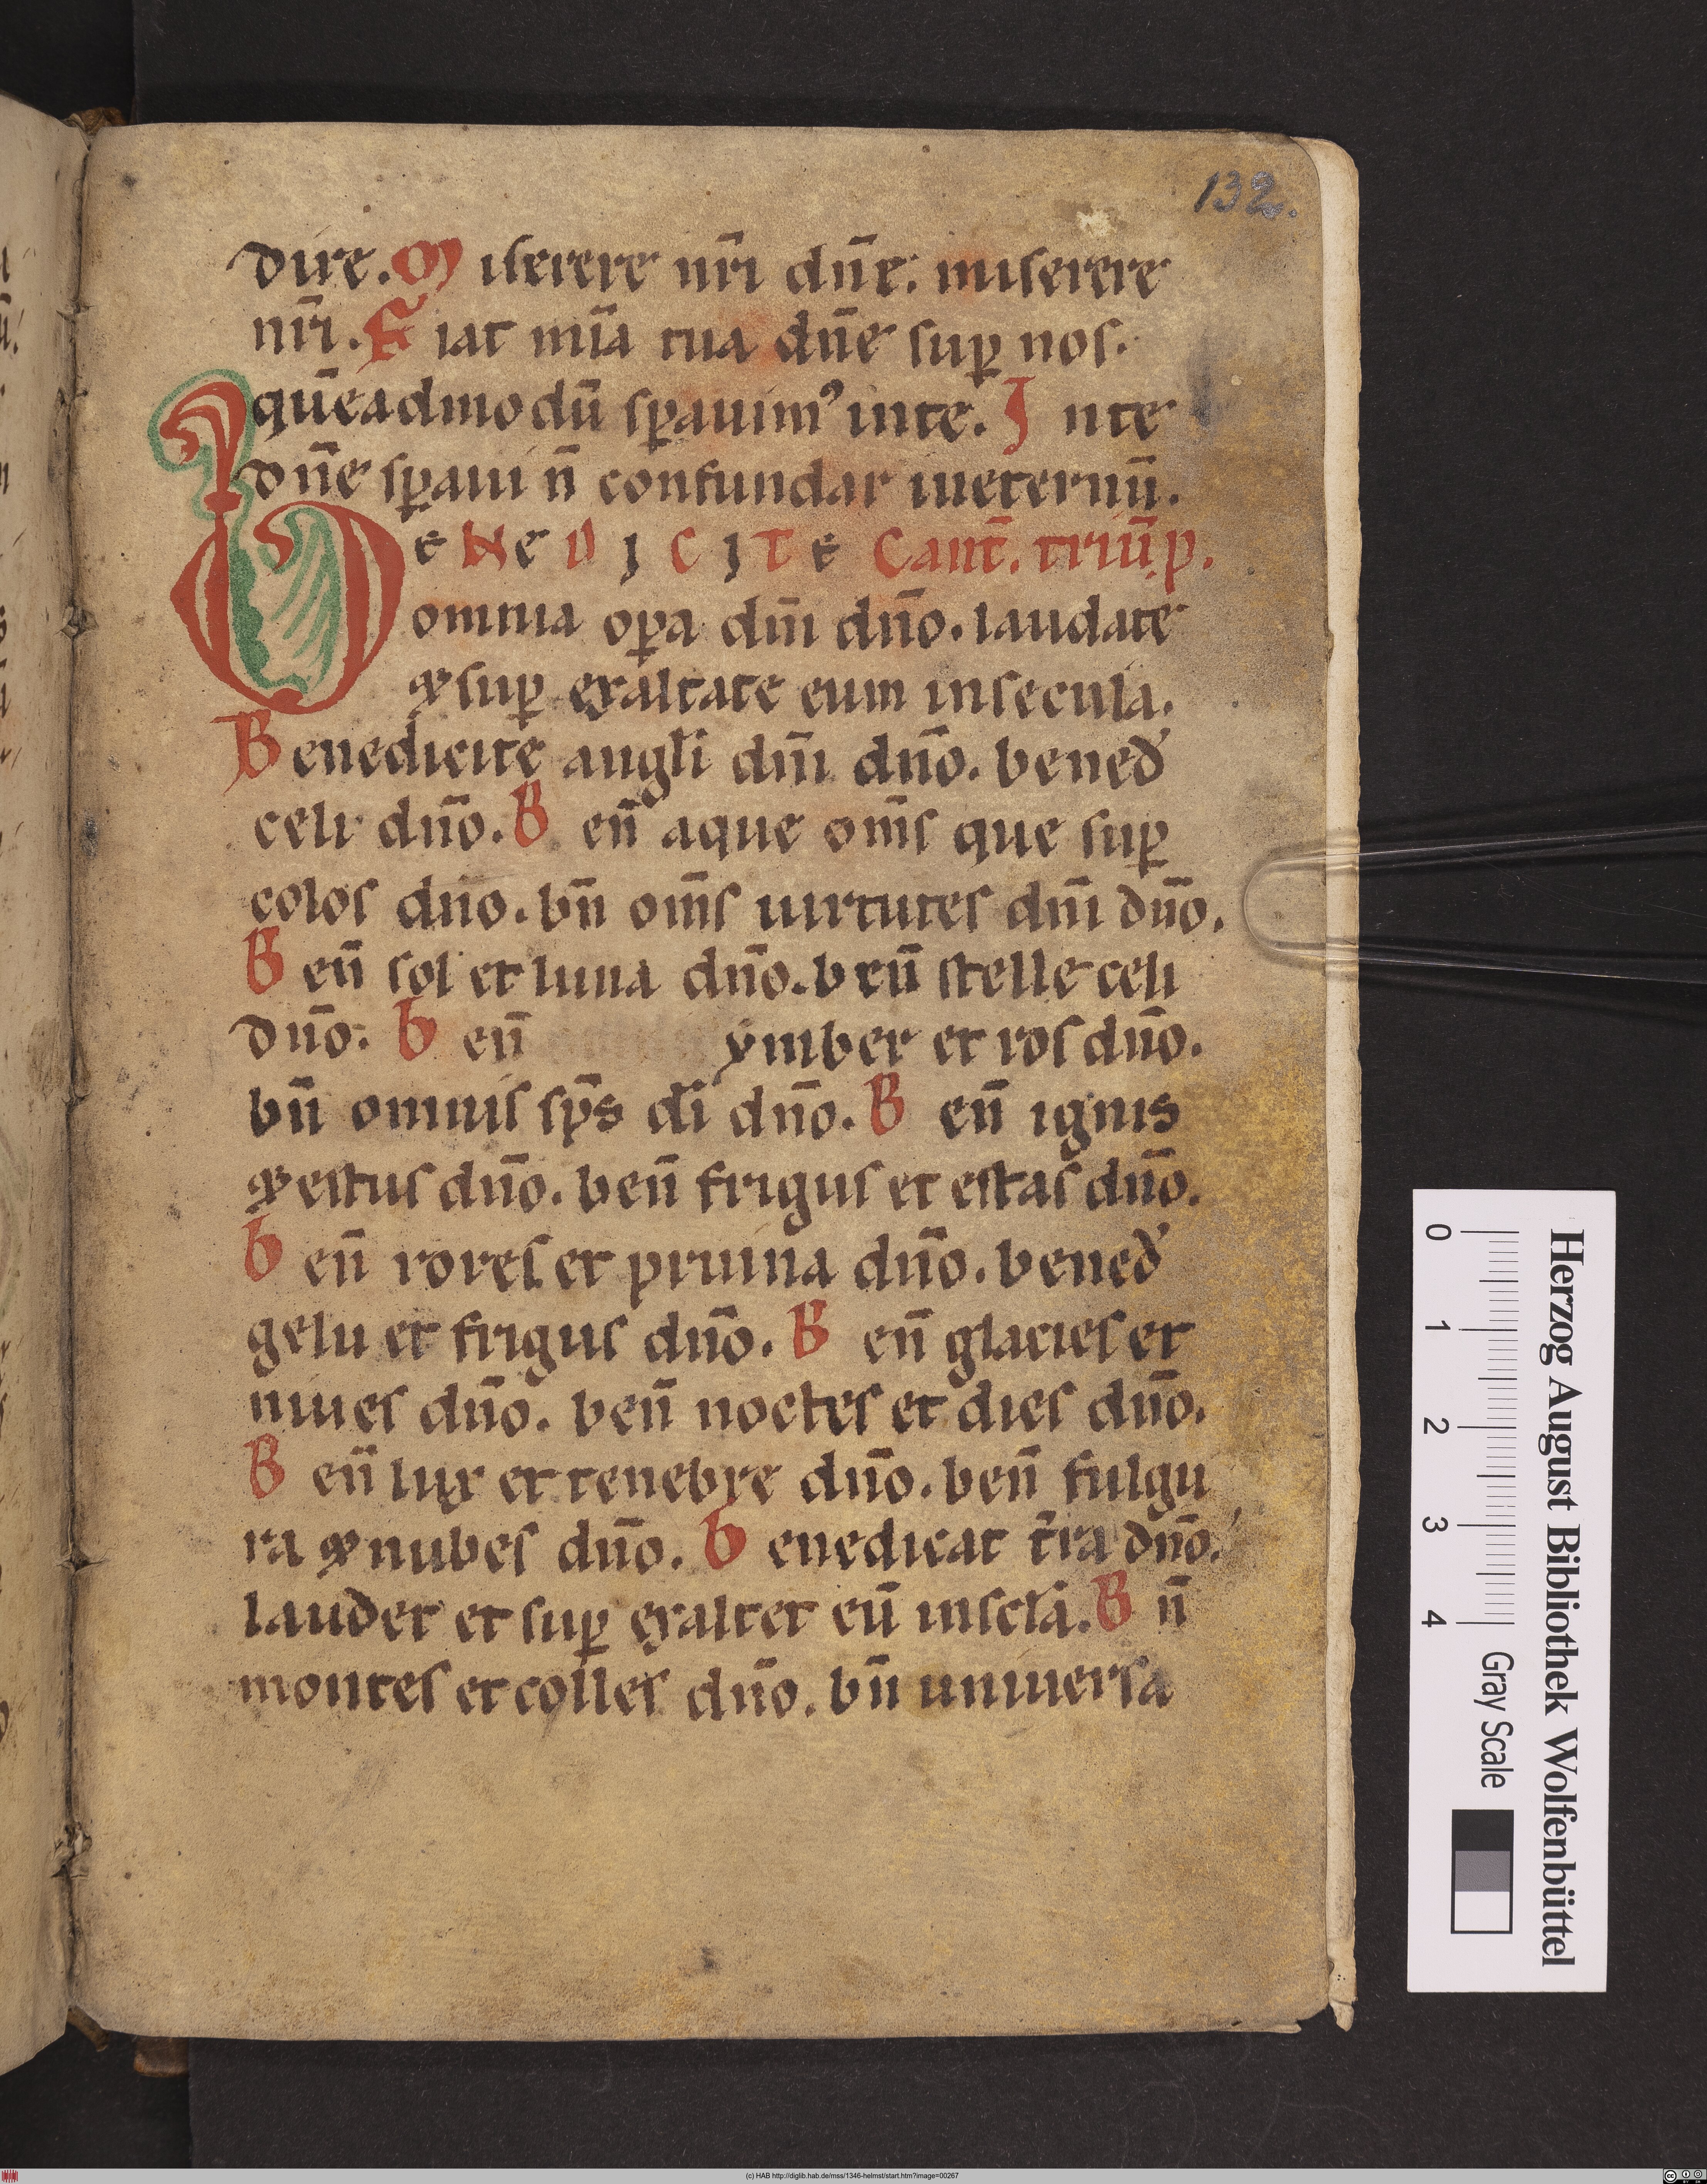 132.
dire. Miserere nr̄i dn̄e. miserere
nr̄i. Fiat mīa tua dn̄e sup̲ nos.
quēadmodū sp̲auimꝰ inte. Inte
dn̄e sp̲aui n̄ confundar ineternū.
BENEDICITE Cant̄. triū.p.
omnia op̲a dn̄i dn̄o. laudate
&sup̲ exaltate eum insecula.
Benedicite angl̄i dn̄i dn̄o. bened̄
celi dn̄o. Ben̄ aque om̄s que sup̲
celos dn̄o. bn̄ om̄s uirtutes dn̄i dn̄o.
Ben̄ sol et luna dn̄o. ben̄ stelle celi
dn̄o. Ben̄ ymber et ros dn̄o.
bn̄ omnis sp̄s dī dn̄o. Ben̄ ignis
&estus dn̄o. ben̄ frigus et estas dn̄o.
Ben̄ rores et pruina dn̄o. bened̄
gelu et frigus dn̄o. Ben̄ glacies et
niues dn̄o. ben̄ noctes et dies dn̄o.
Ben̄ lux et tenebre dn̄o. ben̄ fulgu
ra & nubes dn̄o. Benedicat t̄ra dn̄o.
laudet et sup̲ exaltet eū inscl̄a. Bn̄
montes et colles dn̄o. bn̄ uniuersa
Herzog August Bibliothek Wolfenbüttel
0 1 2 3 4
Gray Scale
(c) HAB http://diglib.hab.de/mss/1346-helmst/start.htm?image=00267